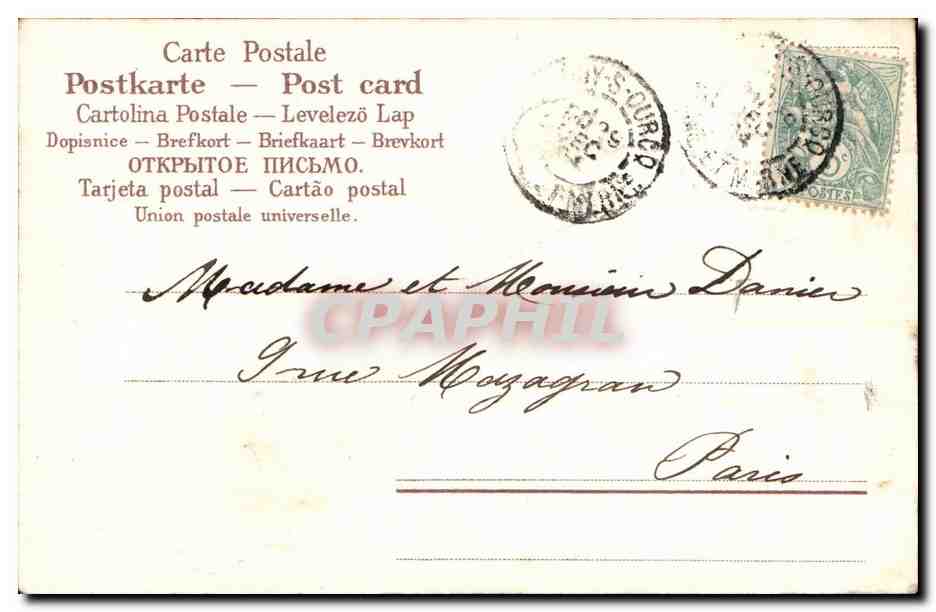 Carte Postale
Postkarte — Post card
Cartolina Postale — Levelező Lap
Dopisnice — Brefkort — Briefkaart — Brevkort
ОТКРЫТОЕ ПИСЬМО.
Tarjeta postal — Cartão postal
Union postale universelle.
Y-S-OURCQ
MARNE
5c
POSTES
Madame et Monsieur Danier
CPAPHIL
9 rue Mazagran
Paris